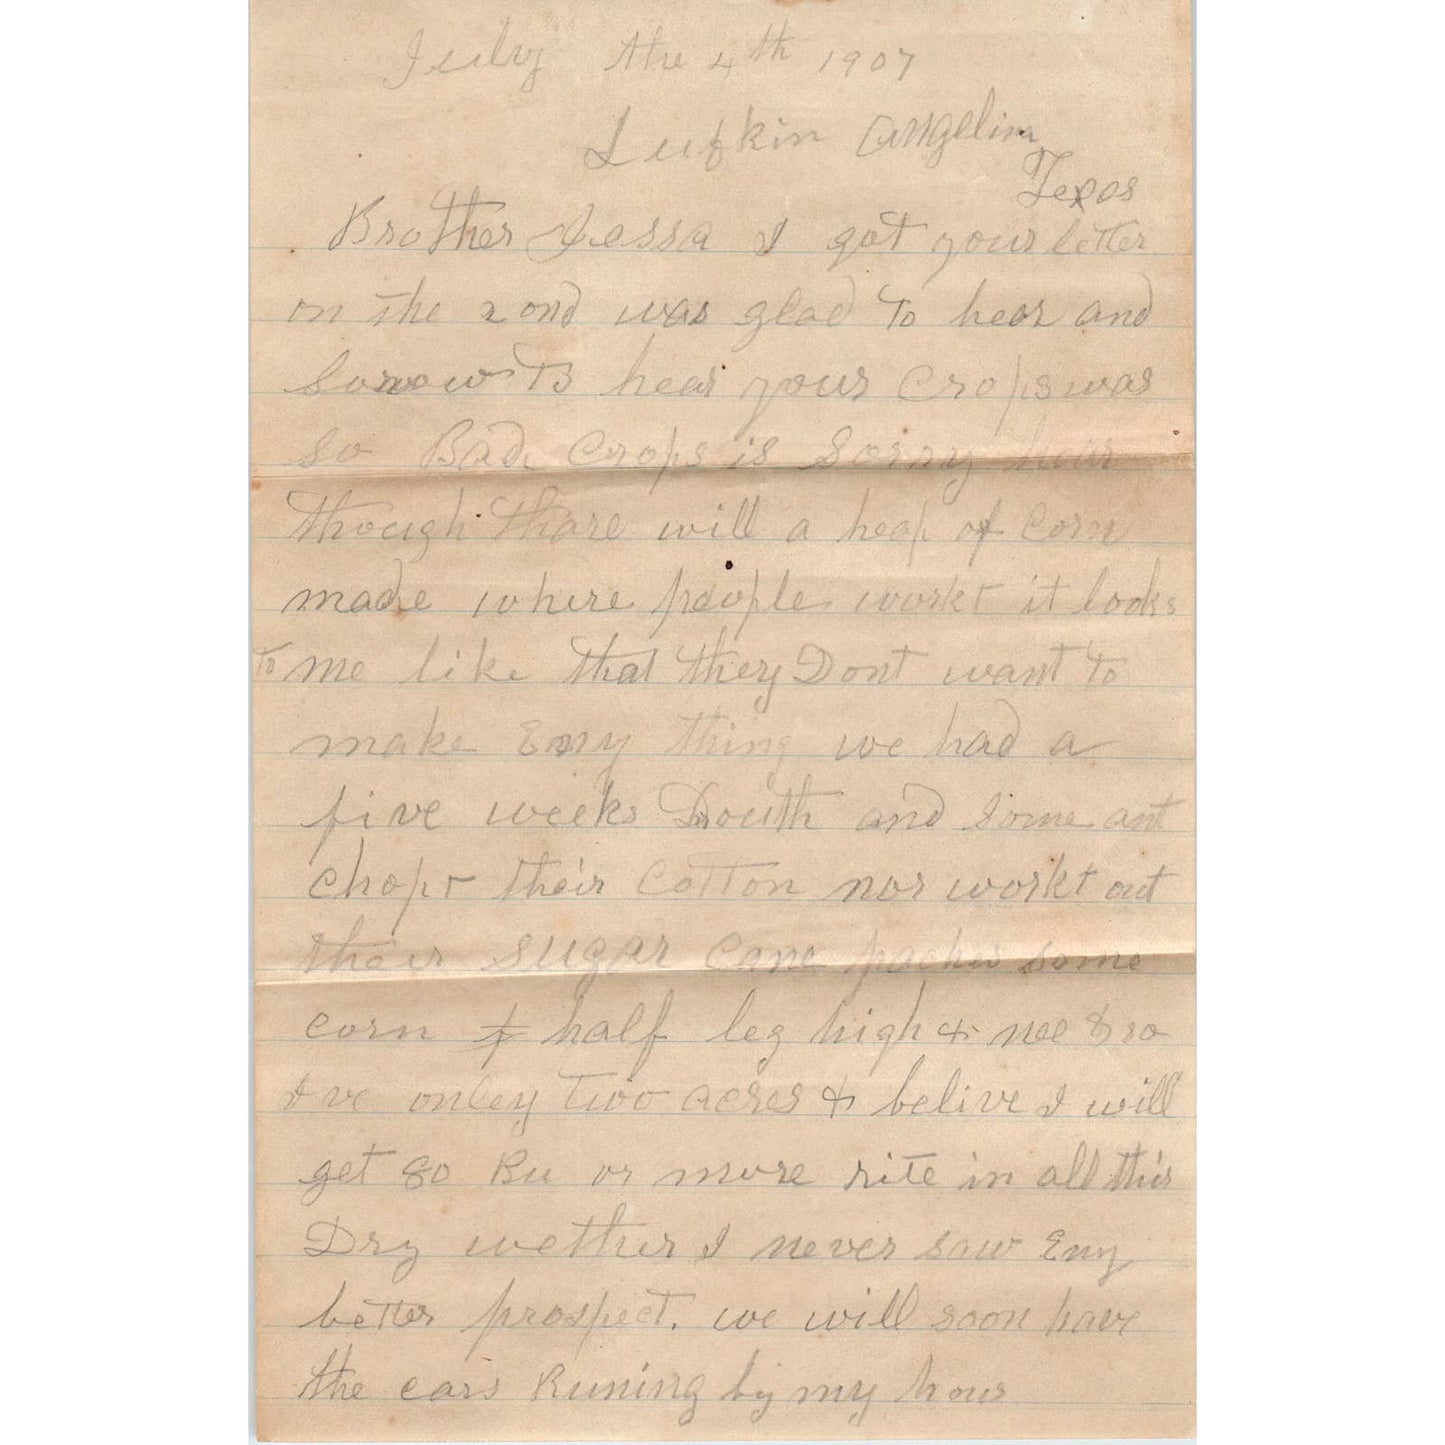 July the 4th 1907
Lufkin Angelina
Texos
Brother Jessa I got your letter
on the 2ond was glad to hear and
Sorrow to hear your Crops was
so Bad Crops is Sorry hear
though thare will a heap of Corn
made where people workt it looks
to me like that they Dont want to
make Eny thing we had a
five weeks Drouth and Some ant
chopt their Cotton nor workt out
their sugar Cane some
corn half leg high &
I ve onley Two acers & belive I will
get 80 Bu or more rite in all this
Dry wether I never saw Eny
better prospect. we will soon have
the cars Runing by my hous